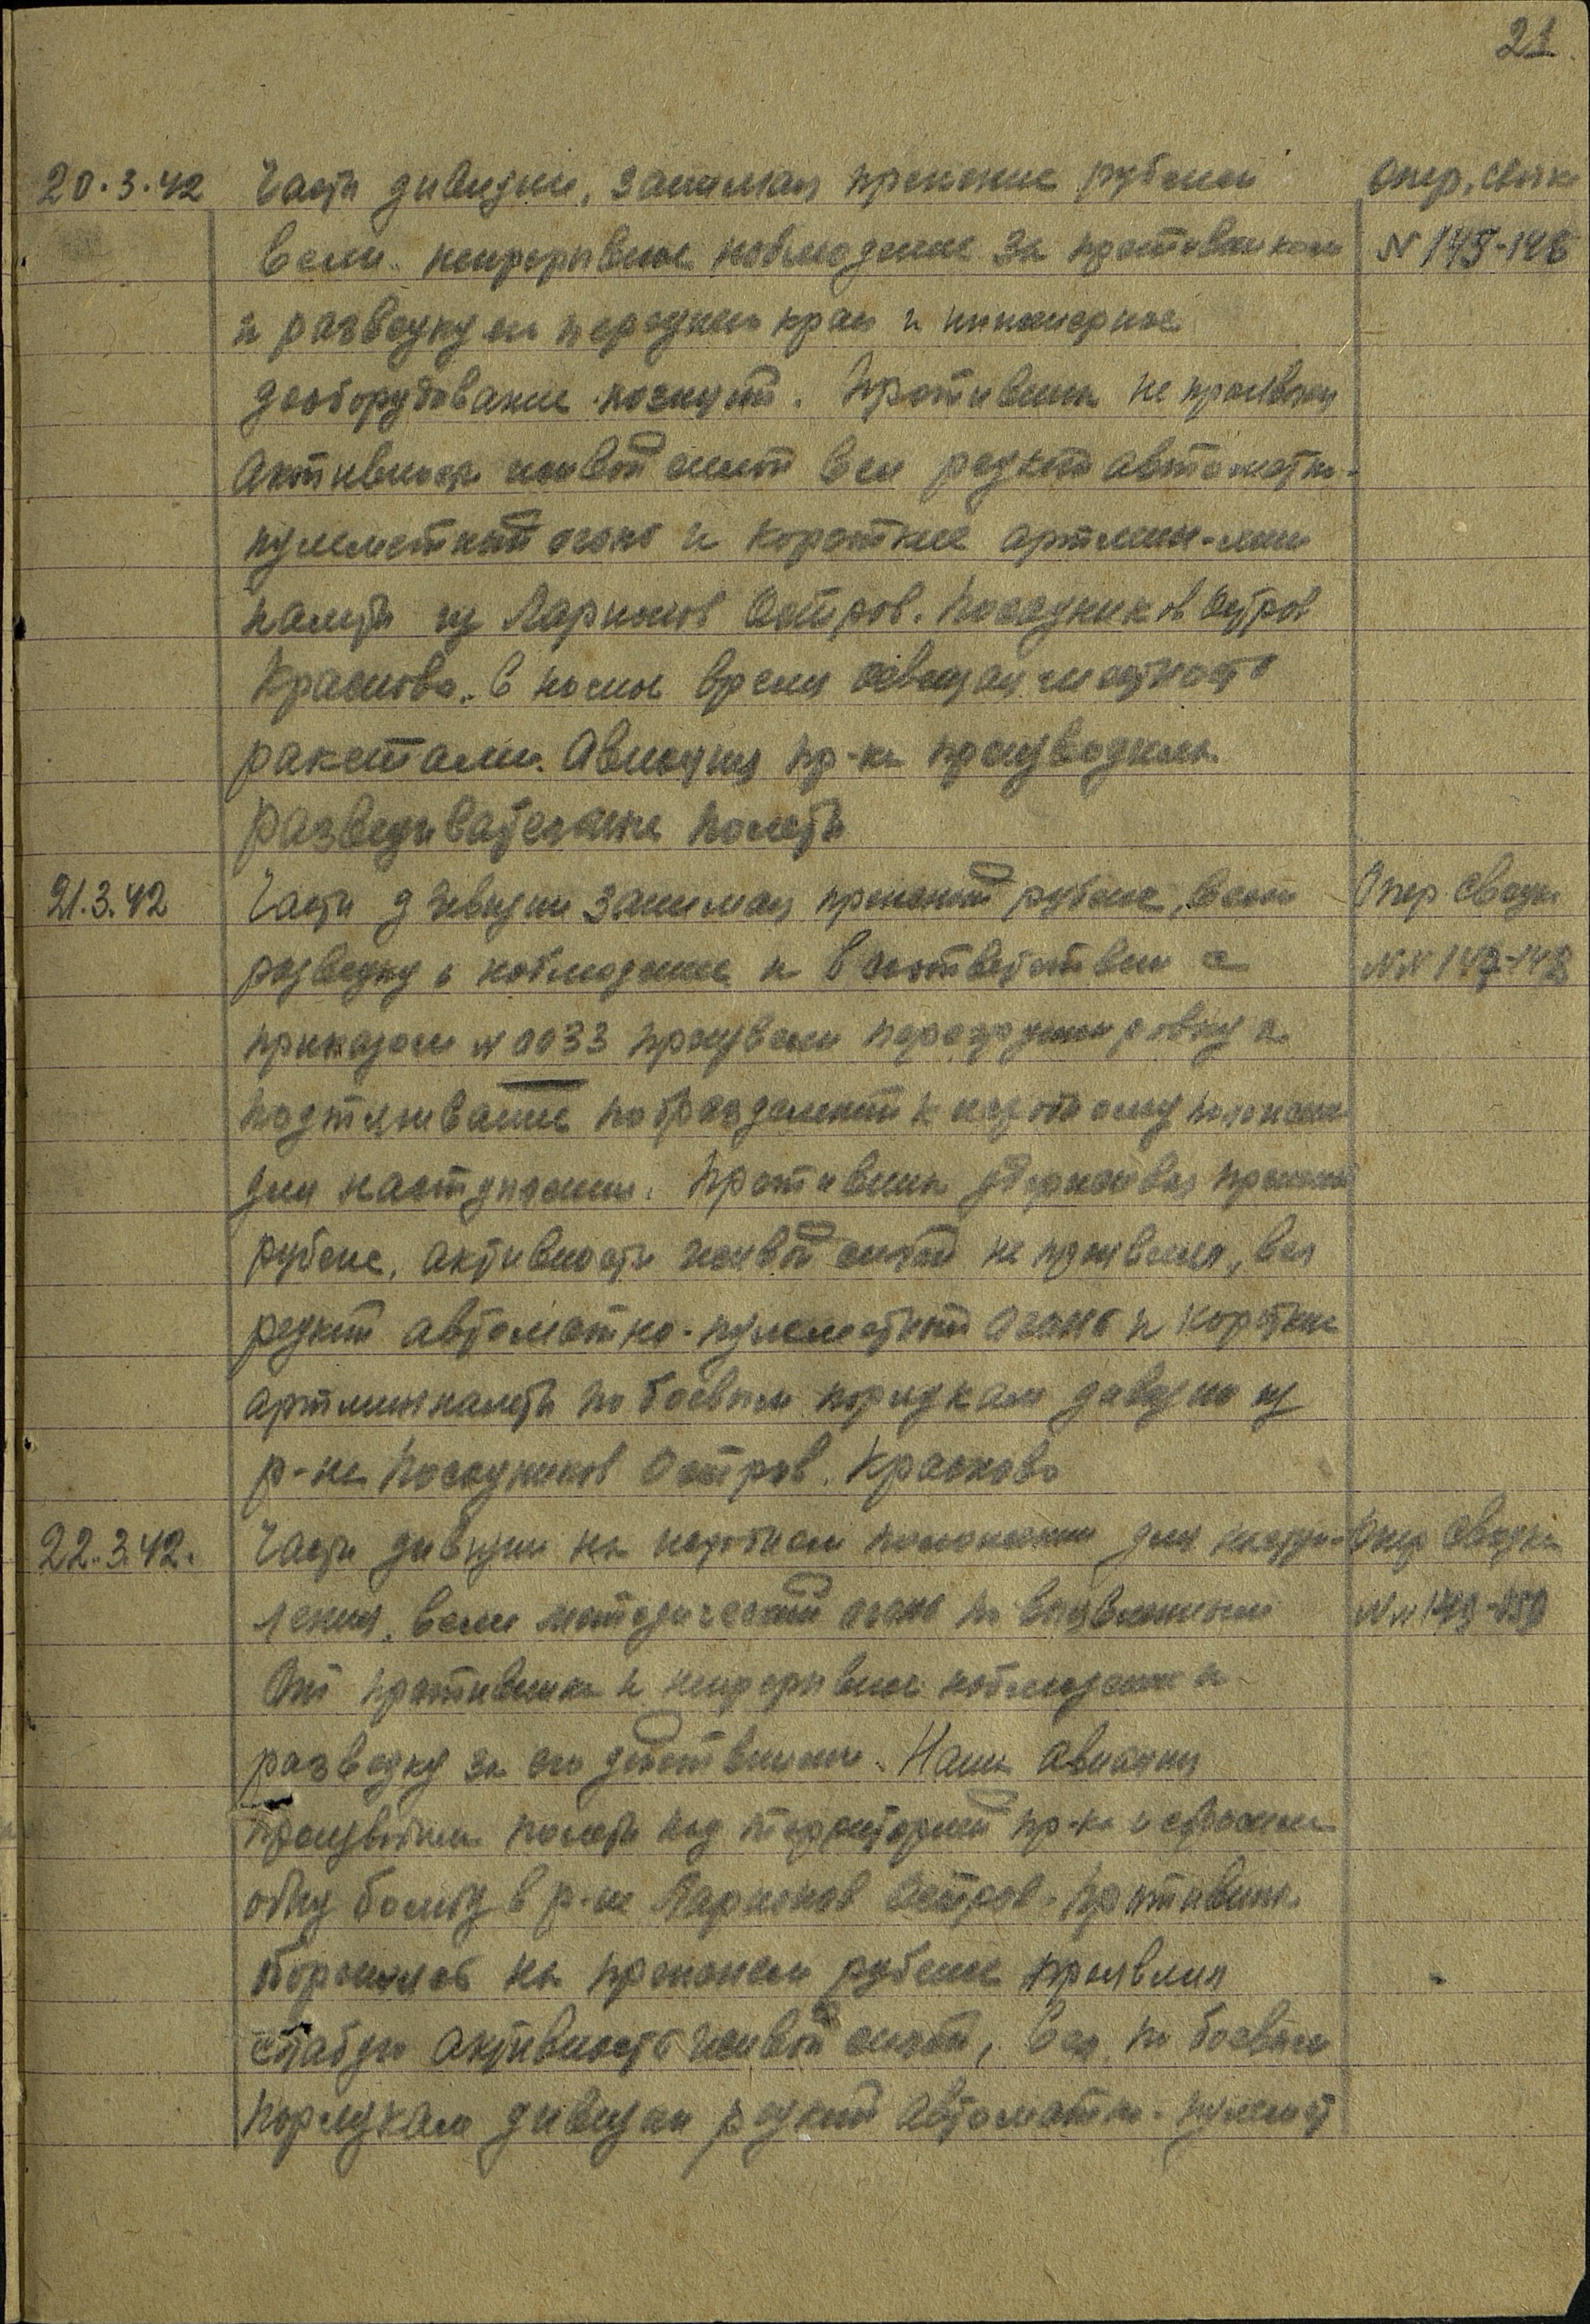 21
20.3.42 Части дивизии, занимая прежние рубежи Опер. сводка
вели непрерывное наблюдение за противником N 145-146
и разведку его передн. края и инженерное
дооборудование позиций. Противник не проявляя
активности живой силой вел редкий автоматно-
пулеметный огонь и короткие артмин-мин
налеты из Ларионов Остров. Посадников Остров
Красново. В ночное время освещая местность
ракетами. Авиация пр-ка производила
разведывательные полеты
21.3.42 Части дивизии занимая прежний рубеж, вели Опер сводки
разведку и наблюдение и в соответствии с NN 147-148
приказом N 0033 произвели перегруппировку и
подтягивание подразделений к исходному положению
для наступления. Противник удерживая прежний
рубеж, активности живой силой не проявлял, вел
редкий автоматно-пулеметный огонь и короткие
артминналеты по боевым порядкам дивизии из
р-на Посадников Остров. Красново
22.3.42. Части дивизии на исходном положении для насту- Опер сводки
пления, вели методический огонь по выявленным NN 149-150
От противника и непрерывное наблюдение и
разведку за его действиями. Наша авиация
производила полеты над территорией пр-ка и сбросила
одну бомбу в р-не Ларионов Остров. Противник
оборонялся на прежнем рубеже проявляя
слабую активность живой силой, вел по боевым
порядкам дивизии редкий автоматно-пулемет